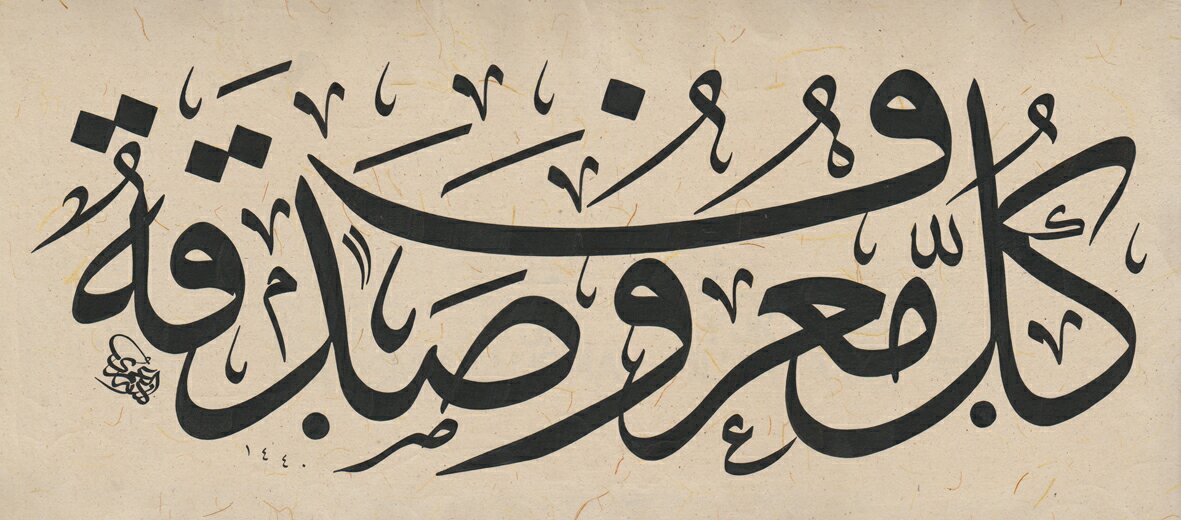 كُلُّ مَعْرُوفٍ صَدَقَةٌ
١٤٤٠